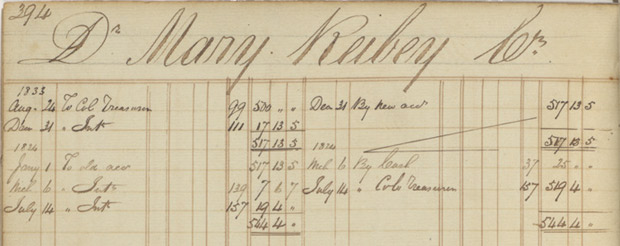 394
Dr Mary Reibey Cr
1833
Aug. 24 To Col Treasurer 99 500 " " Decm 31 By new acc 517 13 5
Decm 31 " Int 111 17 13 5
517 13 5 517 13 5
1834 1834
Jany 1 To acc 517 13 5 Mch 6 By Cash 37 25 " "
Mch 6 " Int 139 7 6 7 July 14 " Colo Treasurer 157 519 4 "
July 14 " Int 157 19 4 "
544 4 " 544 4 "